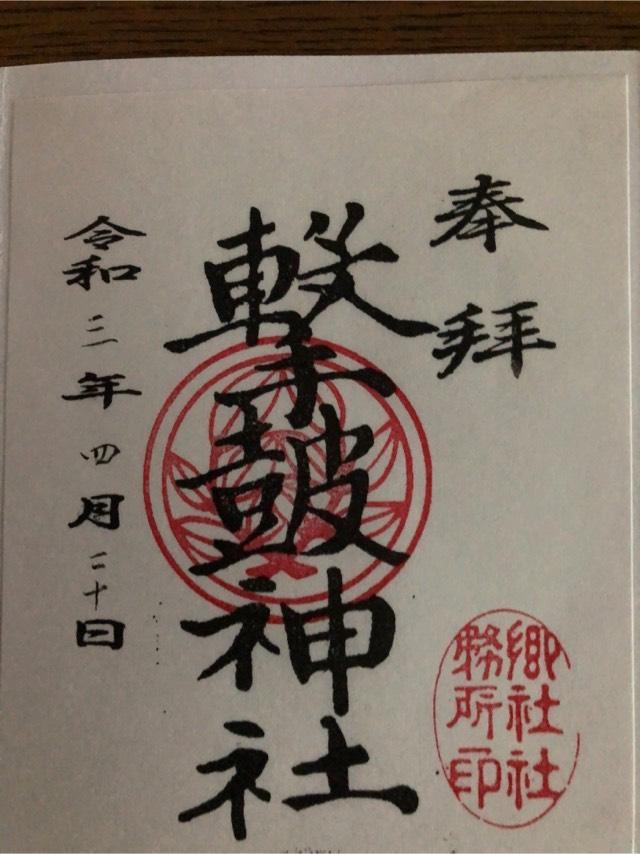 奉拝
撃鼓神社
令和三年四月二十日
郷社社
務所印